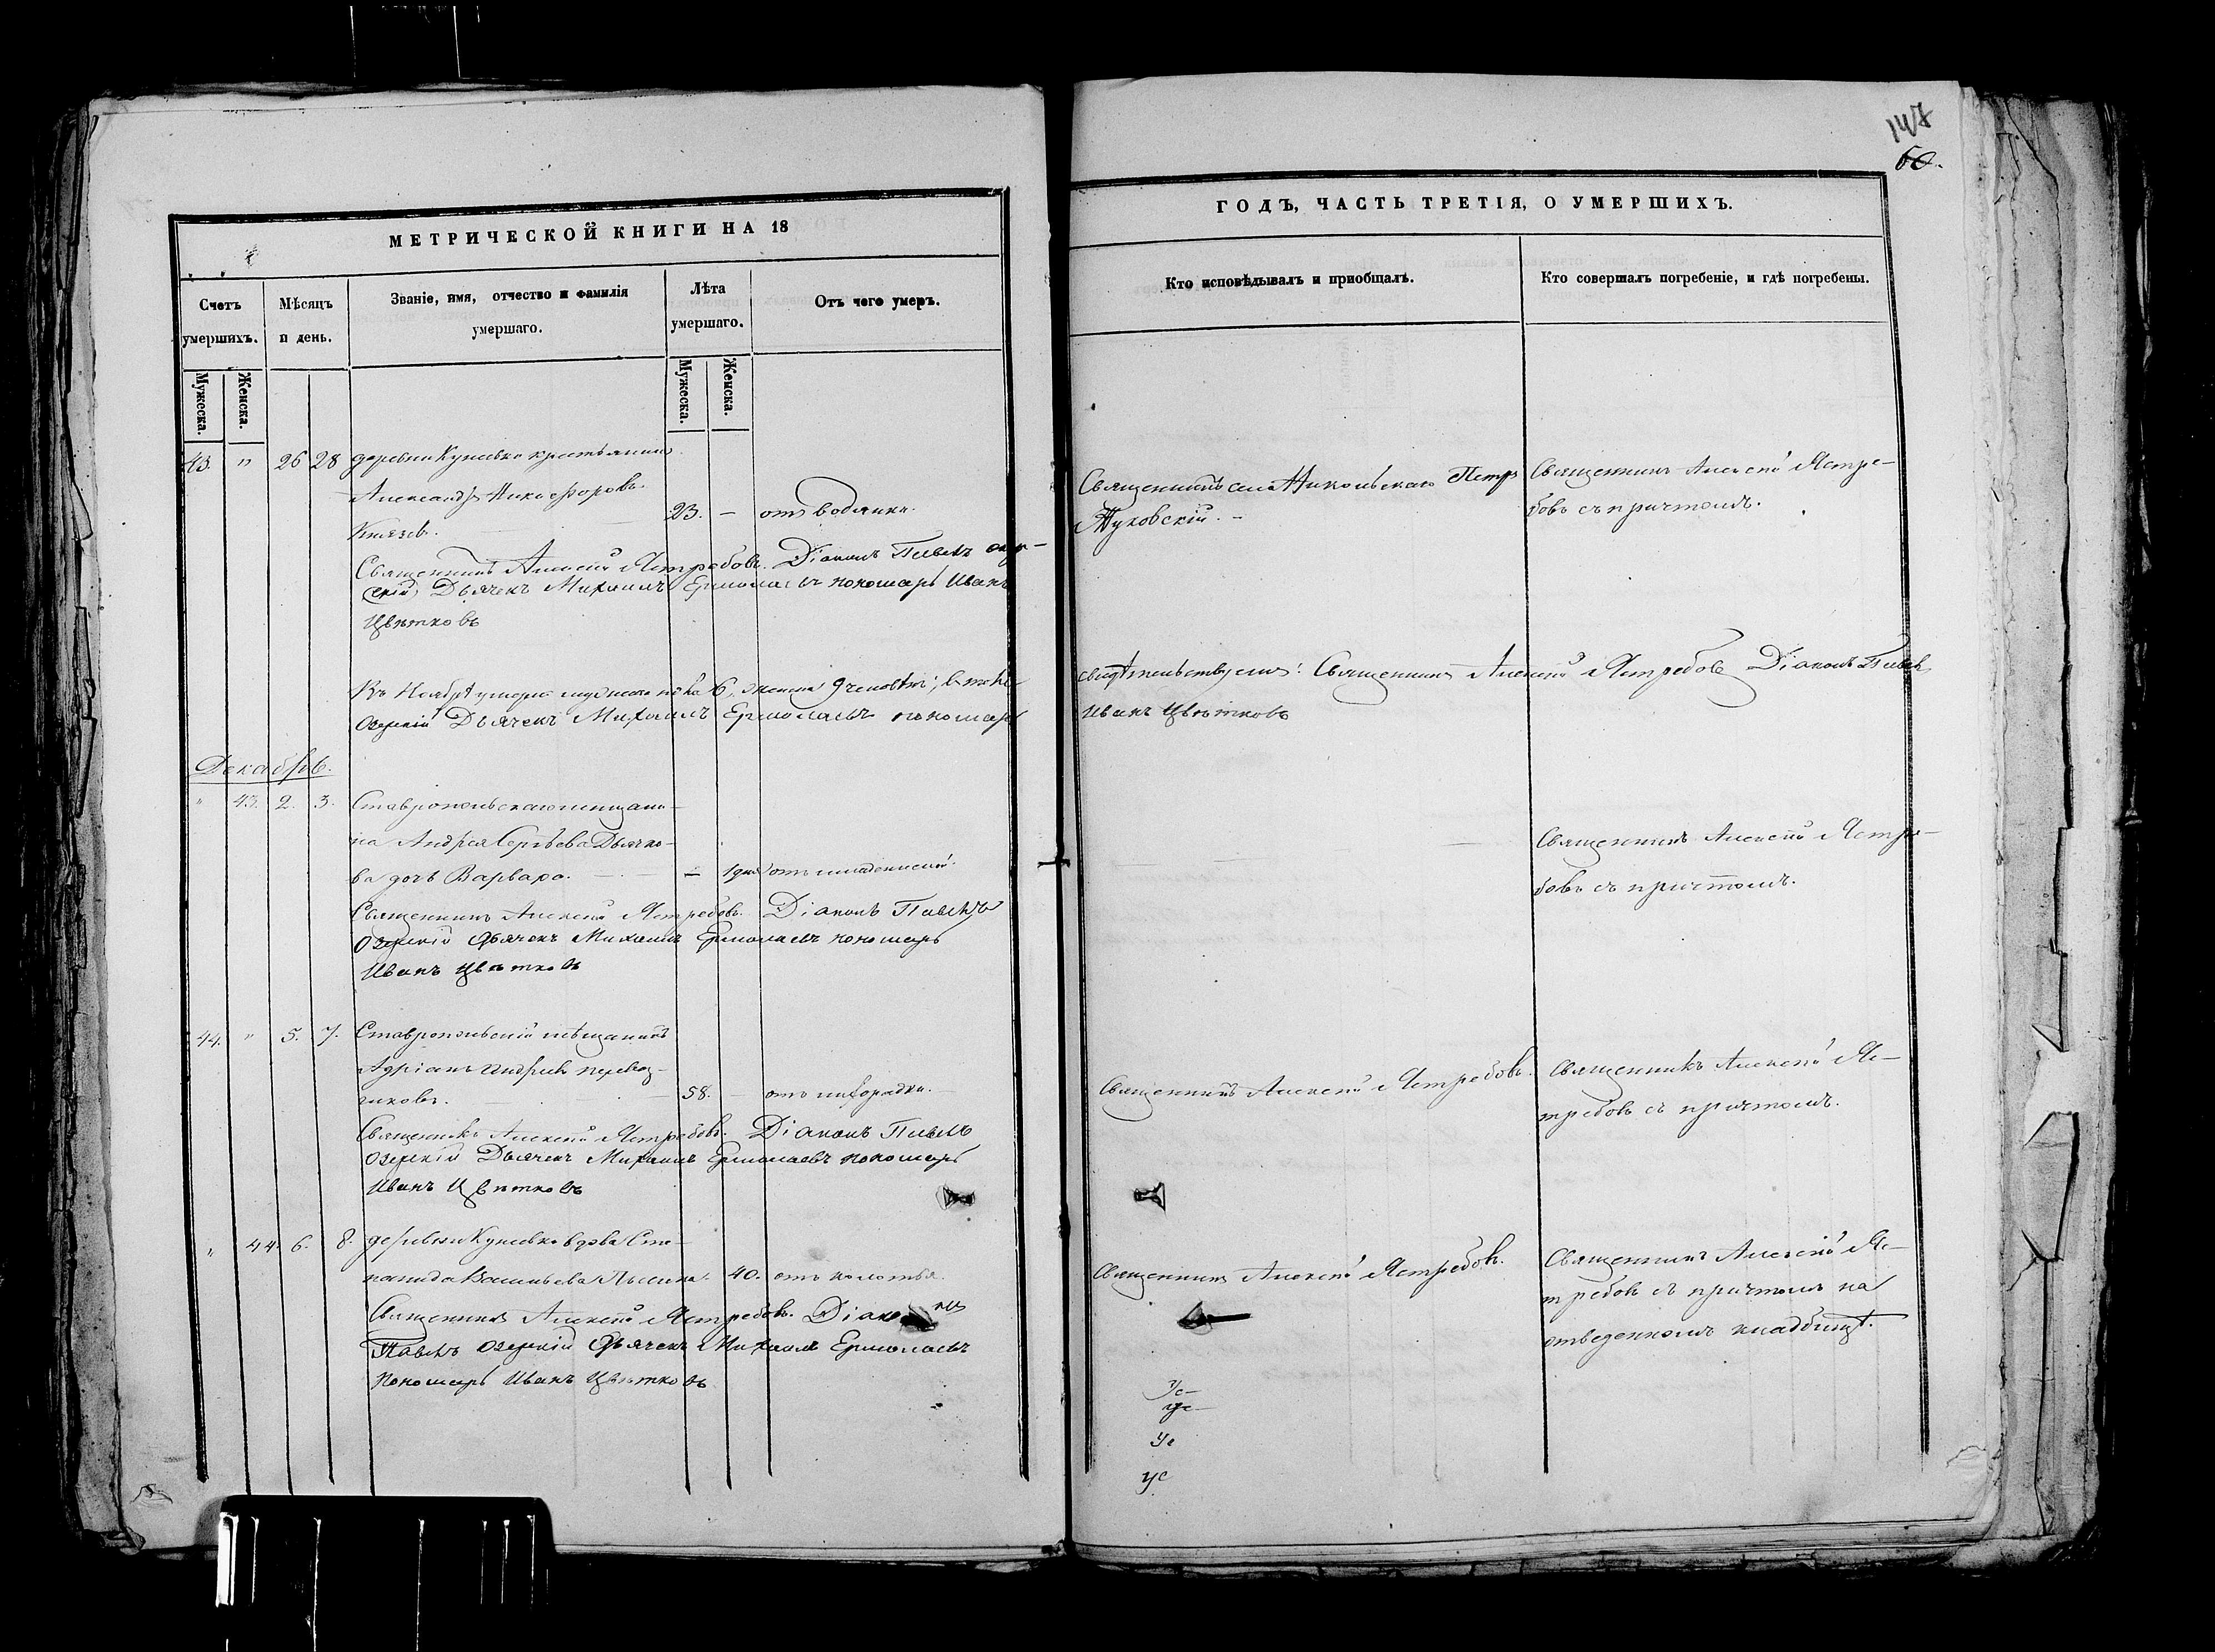 147
60.
МЕТРИЧЕСКОЙ КНИГИ НА 18
Счетъ умершихъ.
Мѣсяцъ и день.
Званіе, имя, отчество и фамилія умершаго.
Лѣта умершаго.
Отъ чего умеръ.
Мужеска.
Женска.
Мужеска.
Женска.
43. " 26 28 деревни Кунеевки крестьянинъ
Александръ Никифоровъ
Князевъ. 23. — отъ водянки.
Священникъ Алексѣй Ястребовъ. Діаконъ Павелъ Озер-
скій Дьячекъ Михаилъ Ермолаевъ пономарь Иванъ
Цвѣтковъ
Въ Ноябрѣ умерло мужеска пола 6, женска 9 человѣкъ; въ томъ
Озерскій Дьячекъ Михаилъ Ермолаевъ пономарь
Декабрь.
" 43. 2. 3. Ставропольскаго мѣщани-
на Андрея Сергѣева Дьячко-
ва дочь Варвара. — 1 дня отъ младенческой.
Священникъ Алексѣй Ястребовъ. Діаконъ Павелъ
Озерскій Дьячекъ Михаилъ Ермолаевъ пономарь
Иванъ Цвѣтковъ
44. " 5. 7. Ставропольскій мѣщанинъ
Адріанъ Андреевъ Перевоз-
чиковъ. 58. — отъ лихорадки.
Священникъ Алексѣй Ястребовъ. Діаконъ Павелъ
Озерскій Дьячекъ Михаилъ Ермолаевъ пономарь
Иванъ Цвѣтковъ
" 44. 6. 8. деревни Кунеевки вдова Сте-
панида Васильева 40. отъ колотья.
Священникъ Алексѣй Ястребовъ. Діаконъ
Павелъ Озерскій Дьячекъ Михаилъ Ермолаевъ
Пономарь Иванъ Цвѣтковъ
ГОДЪ, ЧАСТЬ ТРЕТІЯ, О УМЕРШИХЪ.
Кто исповѣдывалъ и приобщалъ.
Кто совершалъ погребеніе, и гдѣ погребены.
Священникъ села Никольскаго Петръ
Жуковскій. —
Священникъ Алексѣй Ястре-
бовъ съ причтомъ.
свидѣтельствуемъ: Священникъ Алексѣй Ястребовъ Діаконъ Павелъ
Иванъ Цвѣтковъ
Священникъ Алексѣй Ястре-
бовъ съ причтомъ.
Священникъ Алексѣй Ястребовъ.
Священникъ Алексѣй Яс-
требовъ съ причтомъ.
Священникъ Алексѣй Ястребовъ.
Священникъ Алексѣй Яс-
требовъ съ причтомъ на
отведенномъ кладбищѣ.
Ус
ус